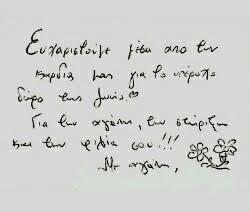 Ευχαριστούμε μέσα από την
καρδιά μας για το υπέροχο
δώρο της ζωής
Για την αγάπη, την στήριξη
και την φιλία σου!!!
Με αγάπη,